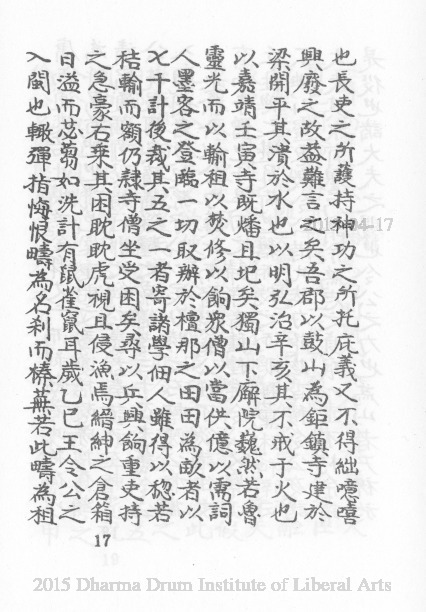 也長吏之所護持神功之所托庇義又不得絀噫嘻
興廢之故葢難言之矣吾郡以鼓山為鉅鎮寺建於
梁開平其潰於水也以明弘治辛亥其不戒于火也
以嘉靖壬寅寺既燔且圮矣獨山下廨院巍然若魯
靈光而以輸租以焚修以餉眾僧以當供億以需詞
人墨客之登臨一切取辦於檀那之田田為畝者以
七千計後裁其五之一者寄諸學佃人雖得以楤若
秸輸而額仍隸寺僧坐受困矣尋以兵興餉重吏持
之急豪右乘其困眈眈虎視且侵漁焉縉紳之倉箱
日溢而苾蒭如洗計有鼠雀竄耳歲乙巳王令公之
入閩也輙彈指悔恨疇為名剎而榛蕪若此疇為租
17
2015-04-17
2015 Dharma Drum Institute of Liberal Arts